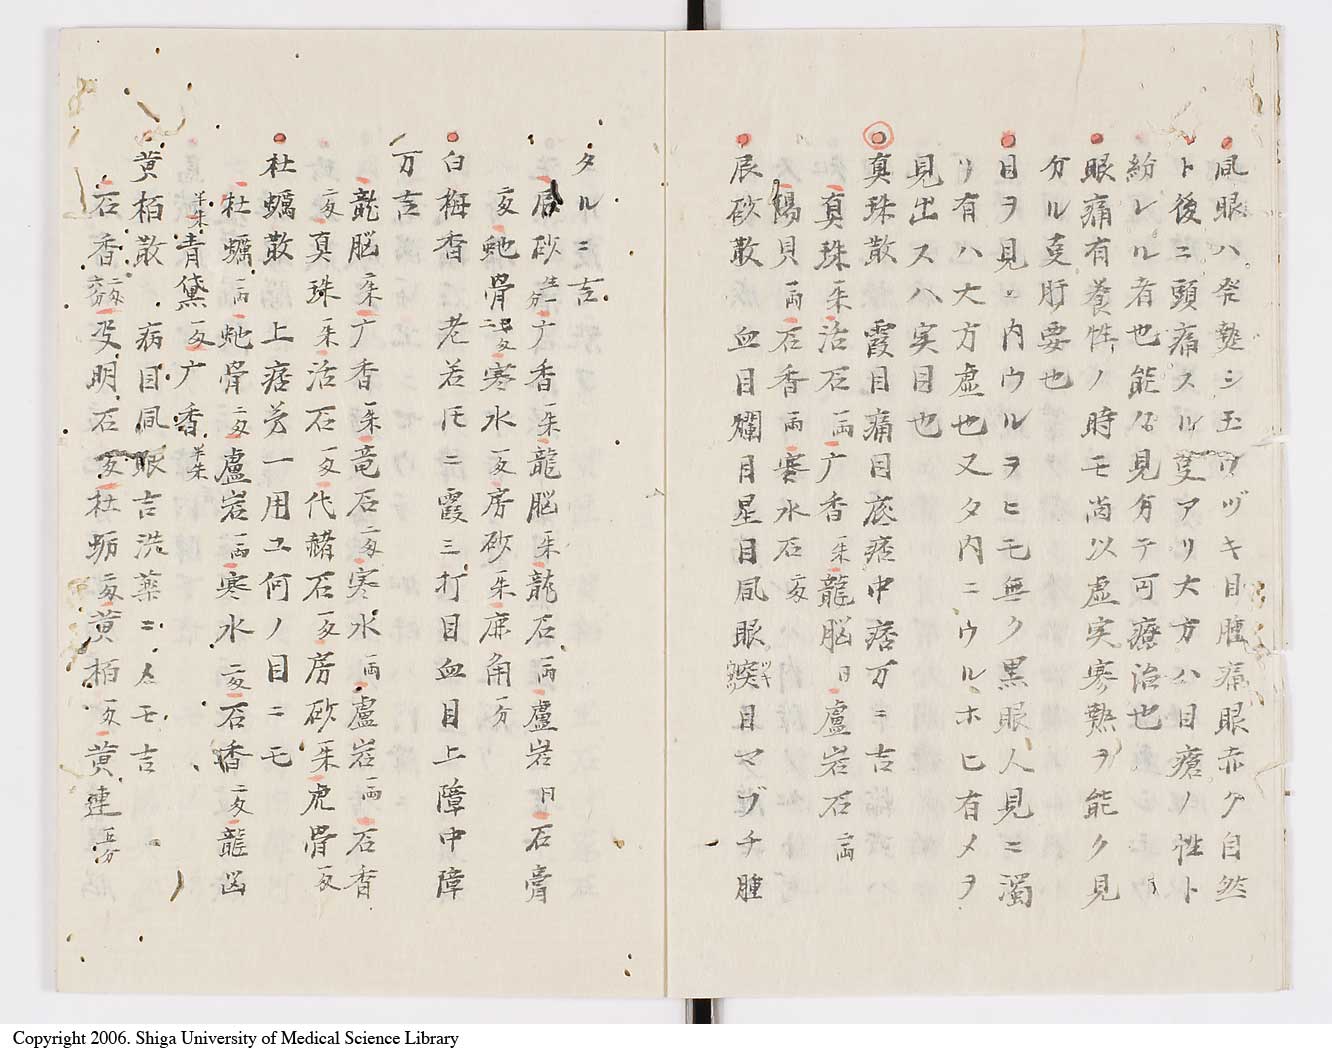 凬眼ハ發熱シ玉ウヅキ目腫痛眼赤ク自然
ト後ニ頭痛スル叓アリ大方ハ目瘡ノ性ト
紛レル者也能〻見分テ可療治也
眼痛有養性ノ時モ尚以虚実寒熱ヲ能ク見
分ル叓肝要也
目ヲ見ル内ウルヲヒモ無ク黒眼人見ニ濁
リ有ハ大方虚也又タ内ニウルホヒ有メヲ
見出スハ実目也
真珠散 霞目痛目底痞中痞万ニ吉
真珠一朱滑石一両广香一朱龍脳 日 盧岩石一両
陽貝一両石香一両寒水石二匁
辰砂散 血目爛目星目凬眼突目マブチ腫
タルニ吉
辰砂 广香一朱龍脳一朱龍石一両盧岩 日 石膏
二匁虵骨 寒水一匁房砂一朱鹿角一分
白梅香 老若氏ニ霞三打目血目上障中障
万吉
龍脳二朱广香一朱竜石二匁寒水一両盧岩一両石香
二匁真珠一朱活石一匁代赭石一匁房砂一朱虎骨一匁
牡蠣散 上痞旁一用ユ何ノ目ニモ
牡蠣一両虵骨二匁盧岩一両寒水二匁石香二匁龍
半朱青黛一匁广香半朱
黄栢散 病目凬眼吉洗薬ニ モ吉
石香二匁 明石一匁牡蛎二匁黄栢一匁黄連五分
Copyright 2006. Shiga University of Medical Science Library